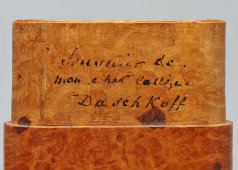 Souvenir de
mon cher collègue
Daschkoff